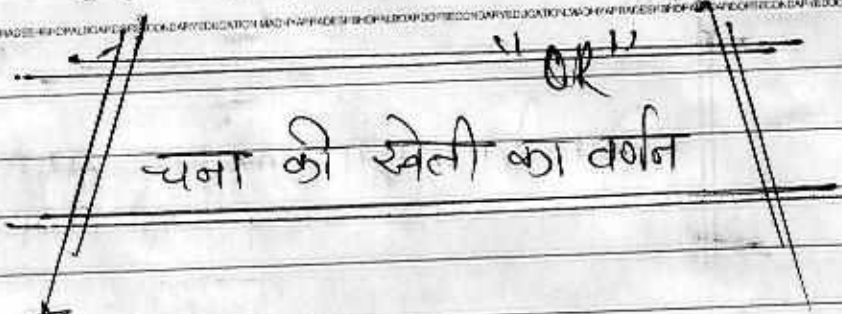 "OR"
चना की खेती का वर्णन